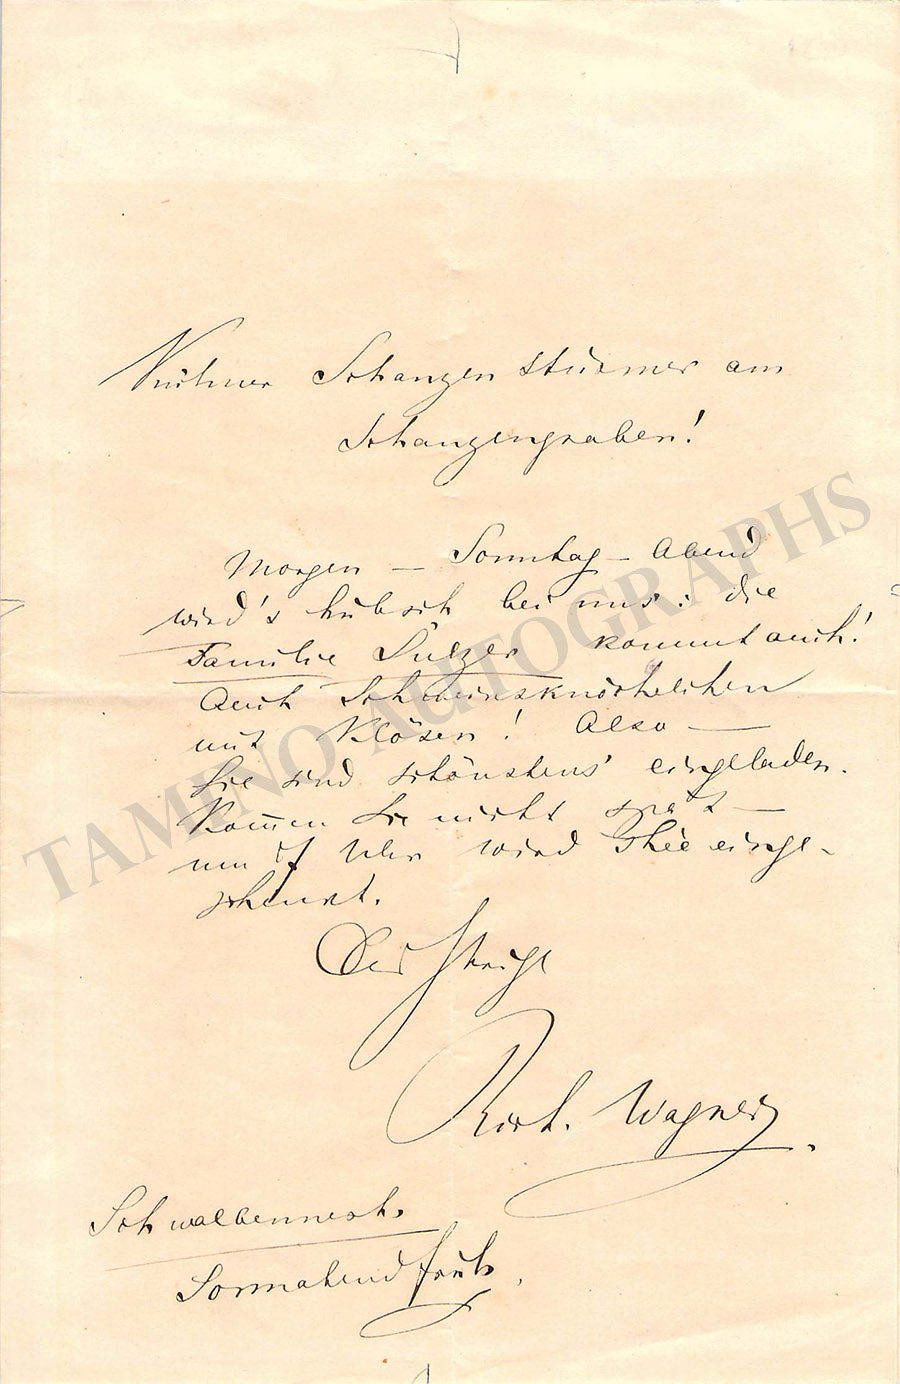 Kühner Schanzenstürmer am
Schanzengraben!
Morgen – Sonntag – Abend
wird's hübsch bei uns: die
Familie Sulzer kommt auch!
Auch Schweinsknöchelchen
mit Klösen! Also —
Sie sind schönstens eingeladen.
Kommen Sie nicht spät —
um Uhr wird Thee einge-
schenkt.
Der
Rich. Wagner.
Schwalbennest.
Sonnabend früh.
TAMINO AUTOGRAPHS